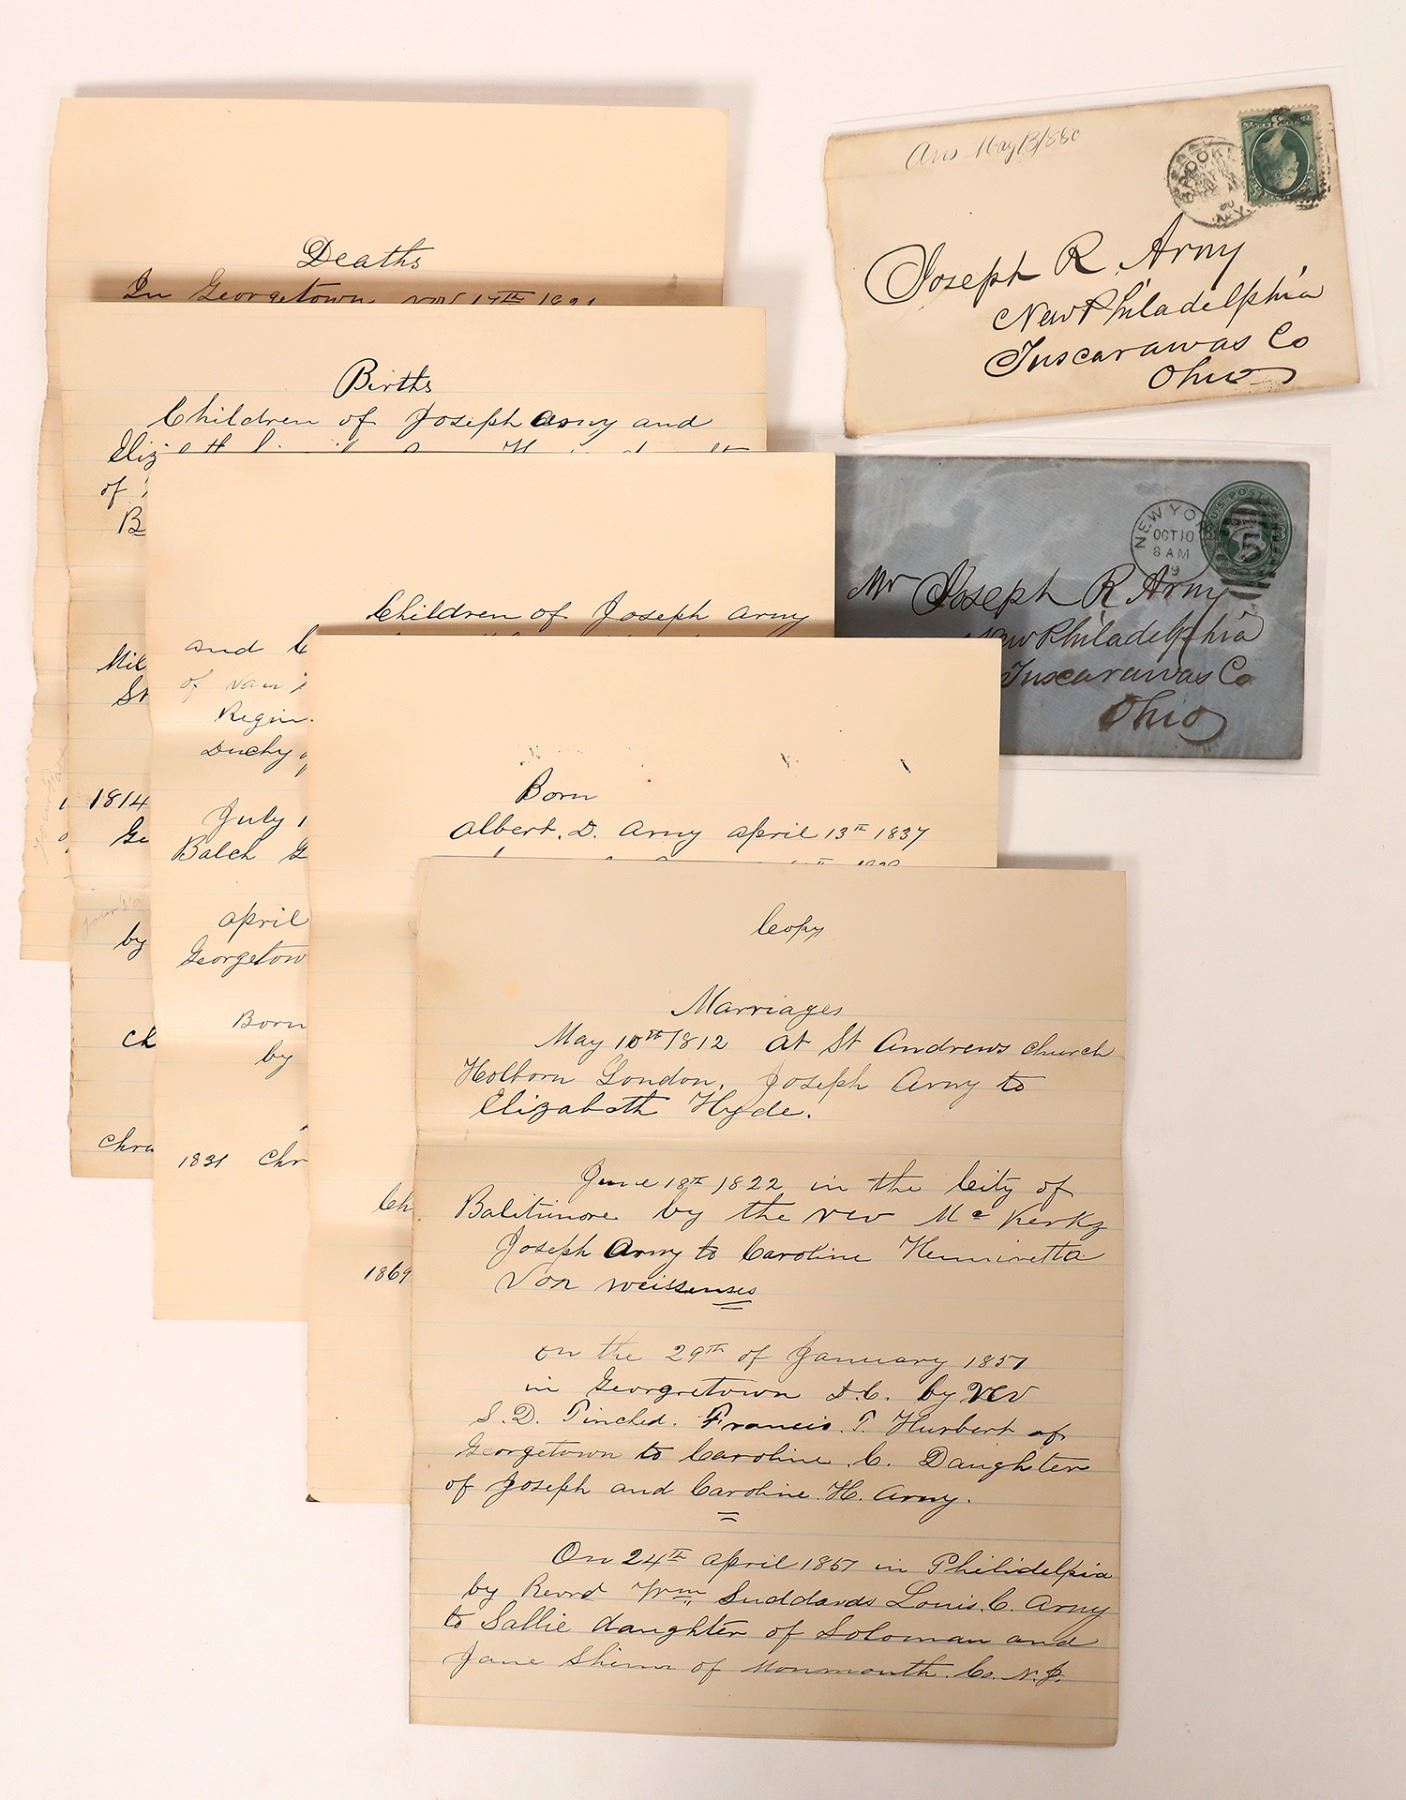 Deaths
In Georgetown Nov 17th 1821
Births
Children of Joseph Arny and
of
Children of Joseph Arny
and
of
Regin
Duchy
1814
July 1
Balch G
by
April
Georgetow
Born
by
Ch
Chr
1831 Chr
Born
Albert. D. Arny April 13th 1837
Ch
1869
Copy
Marriages
May 10th 1812 at St Andrews Church
Holborn London, Joseph Arny to
Elizabeth Hyde.
June 18th 1822 in the City of
Baltimore by the rev Mc Kerkz
Joseph Arny to Caroline Henniretta
Von weissenses
on the 29th of January 1857
in Georgretown D.C. by rev
S. D. Finched. Francis. T. Hurbert of
Georgetown to Caroline. C. Daughter
of Joseph and Caroline. H. Arny.
On 24th April 1857 in Philidelpia
by Revrd Wm Suddards Louis. C. Arny
to Sallie daughter of Soloman and
Jane Shinn of Monmouth. Co. N. J.
Ans May 13/880
BROOK N.Y.
Joseph R. Arny
New Philadelphia
Tuscarawas Co
Ohio
NEW YO
OCT 10
8 AM
U.S. POST
5
Mr Joseph R Arny
New Philadelphia
Tuscarawas Co
Ohio